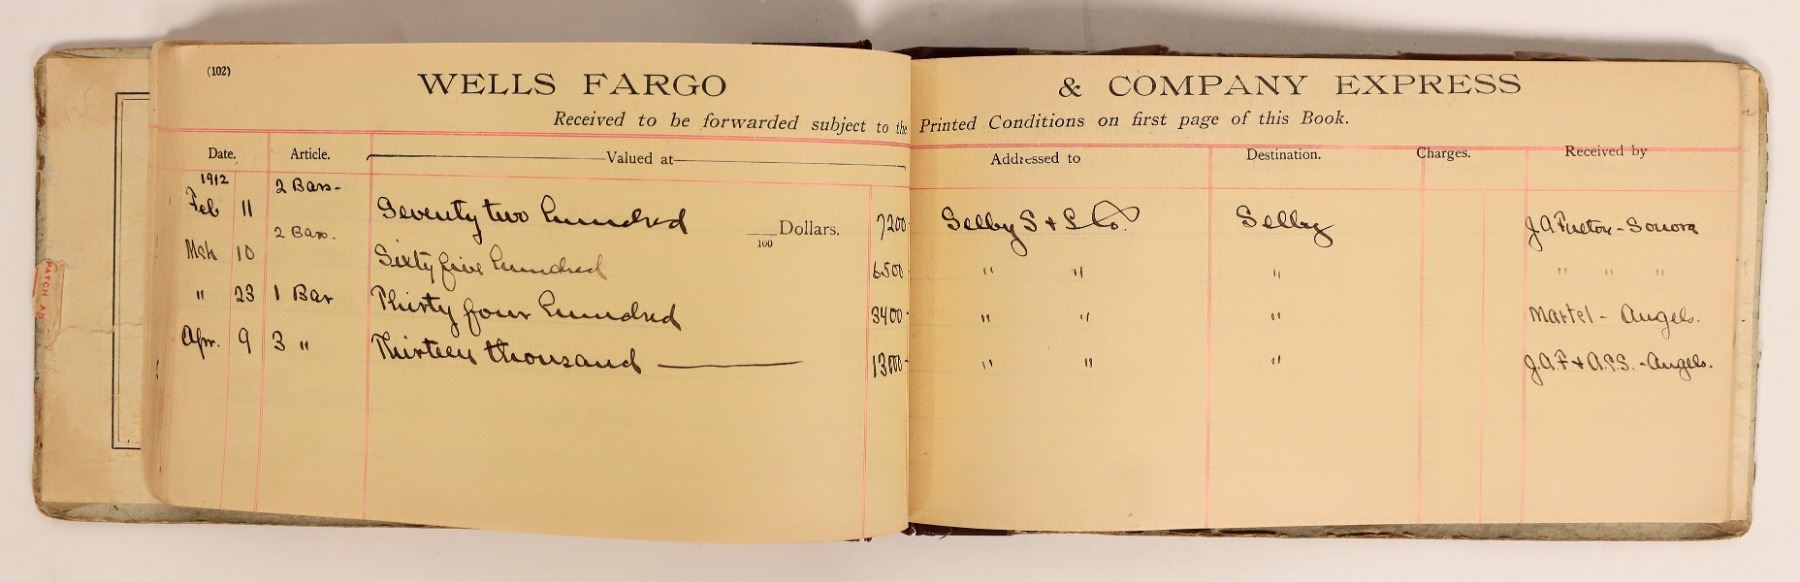 (102)
WELLS FARGO & COMPANY EXPRESS
Received to be forwarded subject to the Printed Conditions on first page of this Book.
Date. Article. Valued at Addressed to Destination. Charges. Received by
1912
Feb 11 2 Bars- Seventy two hundred /100 Dollars. 7200 Selby S & L Co. Selby J.A. - Sonora
Mch 10 2 Bars. Sixty five hundred 6500 " " " " " "
" 23 1 Bar Thirty four hundred 3400 " " " Martel - Angels.
Apr. 9 3 " Thirteen thousand 13000 " " " J.A.F & A.P.S. - Angels.
PATCH AN